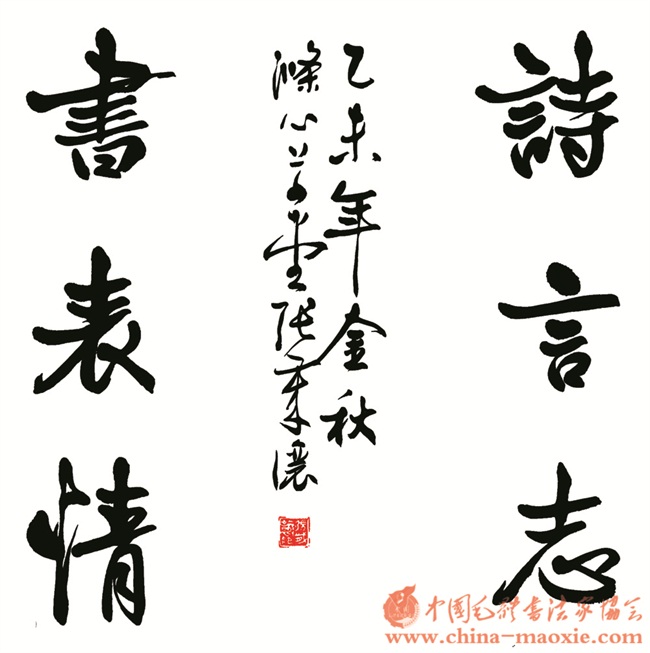 詩言志
乙未年金秋
滌心草堂張秉濃
書表情
中国毛体书法家协会
www.china-maoxie.com